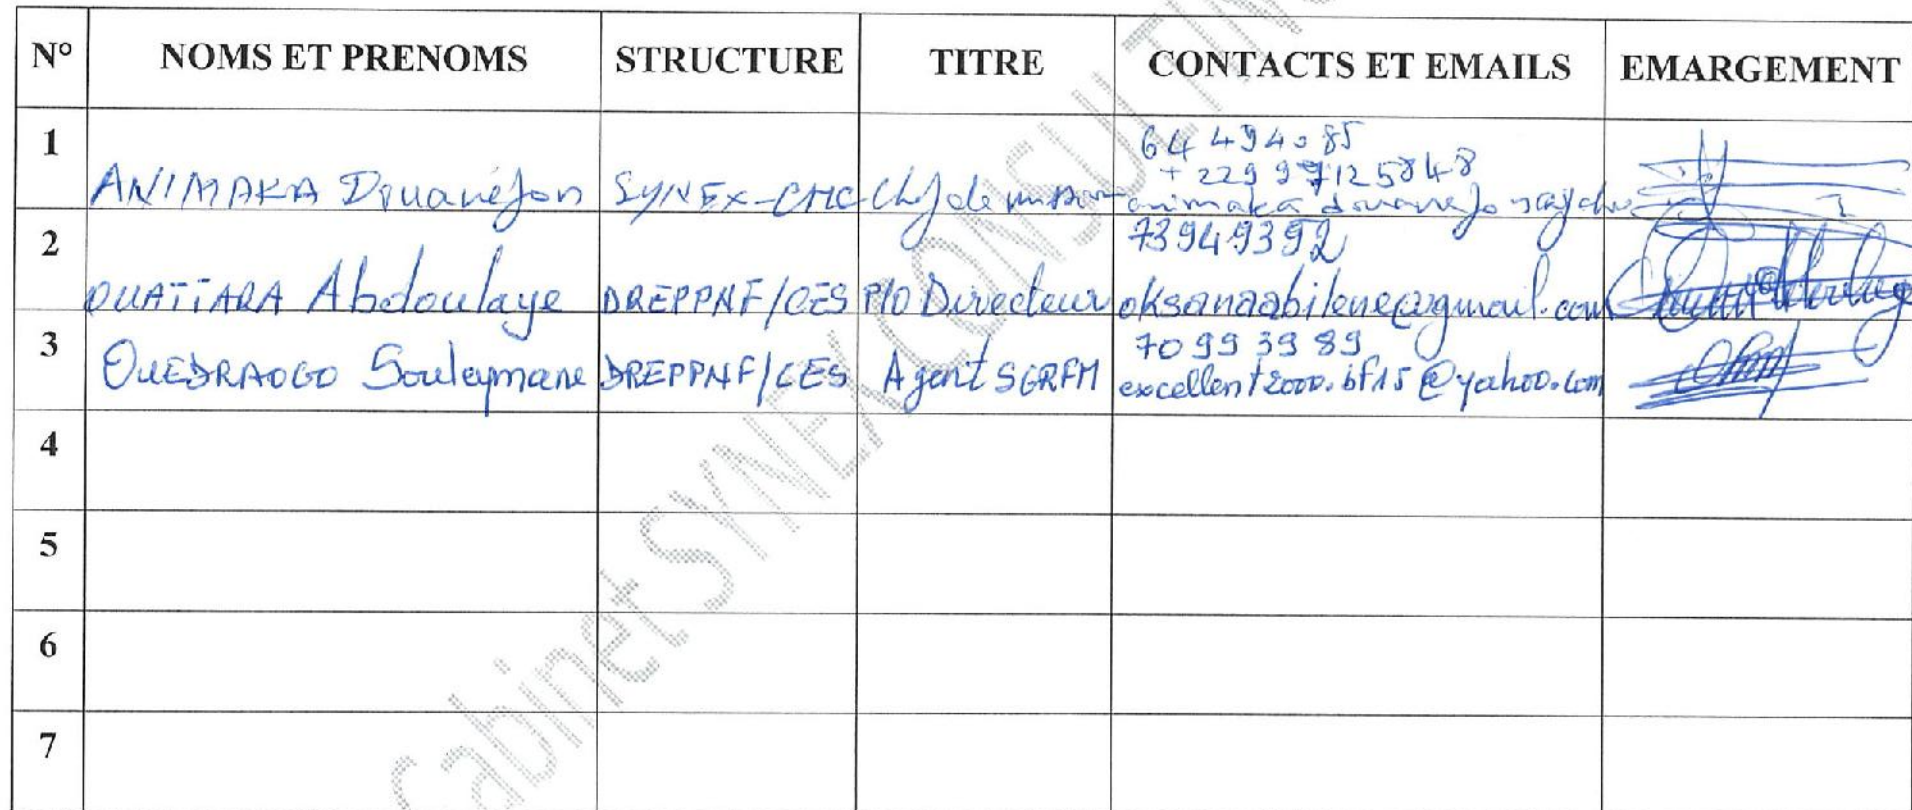 N° NOMS ET PRENOMS STRUCTURE TITRE CONTACTS ET EMAILS EMARGEMENT
1 ANIMAKA Douanéjon SYNEX-CMC Chf de
64 494085
+229 97125848
2 OUATTARA Abdoulaye DREPPNF/CES P/O Directeur
73949392
oksanaabilene@gmail.com
3 OUEDRAOGO Souleymane DREPPNF/CES Agent SGRFM
70 99 39 89
excellent2000.bf15@yahoo.com
4
5
6
7
Cabinet SYNEX CONSULTING